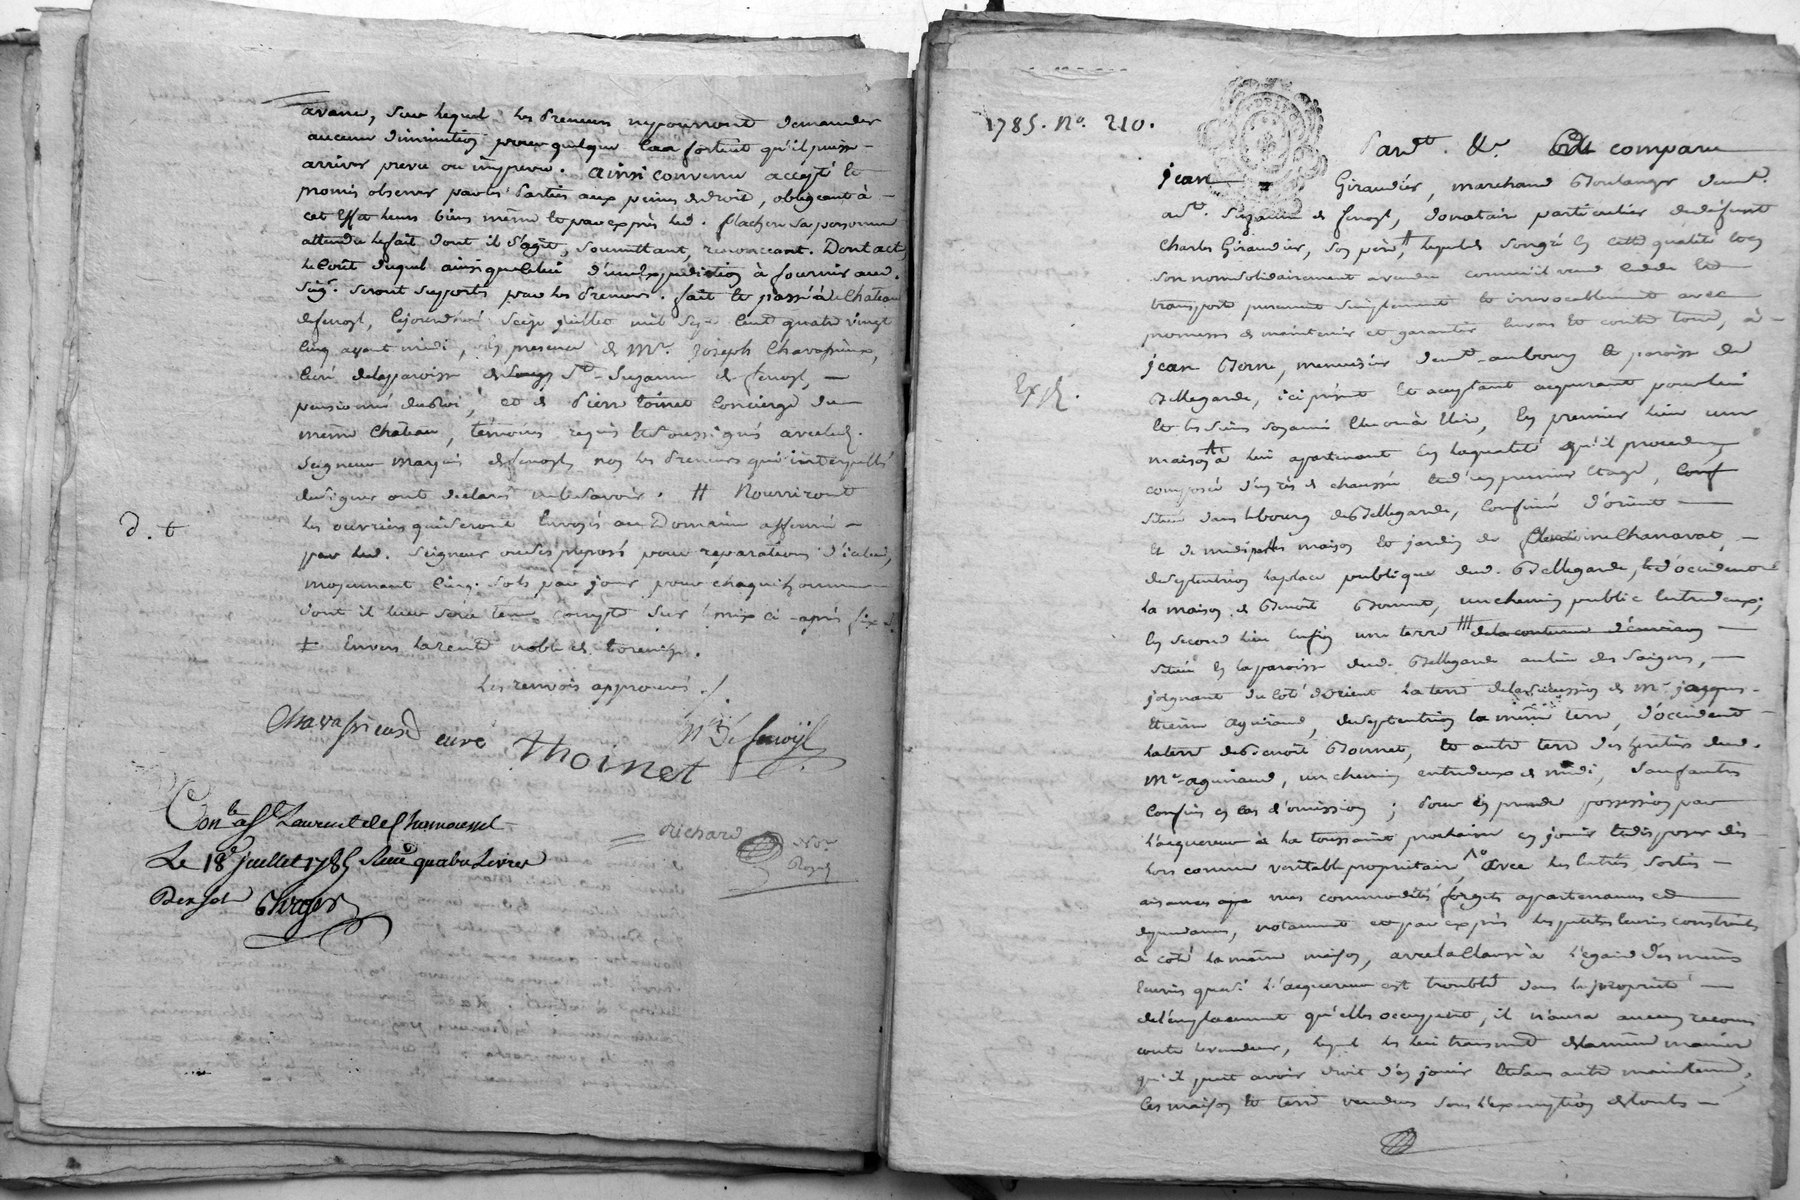 avance, sur lequel les preneurs ne pourront demander
aucune diminution pour quelque cas fortuit qu'il puisse
arriver prevu ou imprevu. Ainsi convenu accepté et
promis observer par les parties aux peines de droit, obligeant à
cet effet leurs biens même et par exprès led. sa personne
attendu le fait dont il s'agit, soumettant, renonceant. Dont acte,
le cout duquel ainsi que celui d'une expedition à fournir aud.
seigr. seront supportés par les preneurs. fait et passé à Chateau
de fenoyl, le jourd'hui seize juillet mil sept cent quatre vingt
cinq avant midi, en presence de Mre. Joseph Chavassieux,
curé de la paroisse de Ste. Suzanne de fenoyl,
pensionné du Roi, et de Pierre toinet concierge du
même Chateau, temoins requis et soussignés avec led.
seigneur marquis de fenoyl, non les preneurs qui interpellés
de signer ont declaré ne le savoir. # Nourriront
les ouvriers qui seront envoyés au Domaine affermé
par led. seigneur ou ses preposés pour reparations d'icelui,
moyennant cinq sols par jour pour chaque homme
dont il leur sera tenu compte sur prix ci-après fixé.
ǂ envers la rente noble de
Les renvois approuvés ./.
Chavassieux curé Thoinet de fenoyl
Conlé. à St. Laurent de Chamousset
Le 18e. juillet 1785 Reçu quatre Livres
Dix sols
Richard Nore. Royal
1785. No. 210.
Pardt. &c. Est comparu
Jean Giraudier, marchand Boulanger demt.
aud. Suzanne de fenoyl, donataire particulier de defunt
Charles Giraudier, son père, lequel de son gré en cette qualité et en
son nom solidairement a vendu comme il vend cede et
transporte purement simplement et irrevocablement avec
promesse de maintenir et garantir envers et contre tous, à
Jean Borne, menuisier demt. au bourg et paroisse de
Exp.
Bellegarde, ici present et acceptant acquerant pour lui
et les siens son ami elu ou à elire, en premier lieu une
maison à lui appartenant en la qualité qu'il procede,
composée d'un rès de chaussée et d'un premier etage,
située dans le bourg de Bellegarde, confinée d'orient
et de midi par les maison et jardin de Chanavat,
de septentrion la place publique dud. Bellegarde, et d'occident
la maison de Benoît Bonnet, un chemin public entredeux;
en second lieu enfin une terre de la contenue d'environ
située en la paroisse dud. Bellegarde au lieu des Saignes,
joignant du coté d'orient la terre de la succession de Mre. Jacques
Etienne Aguiraud, de septentrion la même terre, d'occident
la terre de Benoît Bonnet, et autre terre des heritiers dud.
Mre. aguiraud, un chemin entredeux de midi, sauf autres
confins en cas d'omission; pour en prendre possession par
l'acquereur à la toussaint prochaine en jouir et disposer dès
lors comme veritable propriétaire, avec les entrées, sorties
aisances vues commodités forgets appartenances et
dependances, notamment et par exprès les petites ecuries construites
à coté la même maison, avec la clause à l'egard des mêmes
ecuries que si l'acquereur est troublé dans la proprieté
de l'emplacement qu'elles occupent, il n'aura aucun recours
contre le vendeur, lequel les lui transmet de la même manière
qu'il peut avoir droit d'en jouir et sans autre maintenue,
les maison et terre vendues sous l'exemption de toute